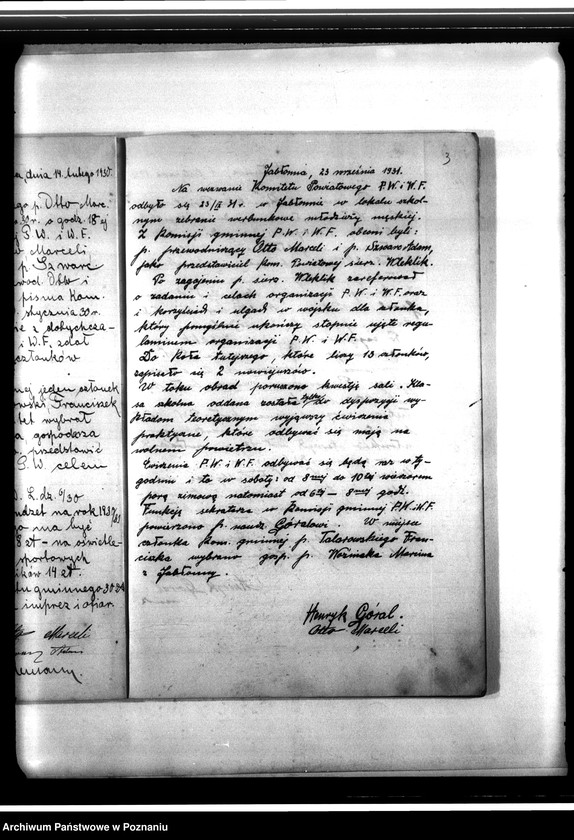 a, dnia 14. lutego 1930.
go p. Otto Marc.
30r. o godz. 18ej
P. W. i W.F.
Marceli
p. Szware
wod. Otto i
pisma Kom.
stycznia 30 r.
się z dotychcza-
i W.F. został
członków
nej jeden członek
owski Franciszek
tet wybrał
a gospodarza
przedstawić
P.W. celem
L. dz. 9/30
budżet na rok 1930/31
ma być
8 zł - na oświetle-
sportowych
ików 19 zł.
gminnego 30 zł
imprez i ofiar
Marceli
3
Jabłonna, 23 września 1931.
Na wezwanie Komitetu Powiatowego P.W. i W.F.
odbyło się 23/IX 31 r. w Jabłonnie w lokalu szkol-
nym zebranie werbunkowe młodzieży męskiej.
Z Komisji gminnej P.W. i W.F. obecni byli:
p. przewodniczący Otto Marceli i p. Szware Adam,
jako przedstawiciel Kom. Powiatowej sierż. Wleklik.
Po zagajeniu p. sierż. Wleklik zareferował
o zadaniu i celach organizacji P.W. i W.F. oraz
i korzyściach i ulgach w wojsku dla członka,
który pomyślnie ukończy stopnie ujęte regu-
laminem organizacji P.W. i W.F.
Do Koła tutejszego, które liczy 13 członków,
zapisało się 2 nowicjuszów.
W toku obrad poruszono kwestję sali. Kla-
sa szkolna oddana została tylko do dyspozycji wy-
kładom teoretycznym wyjąwszy ćwiczenia
praktyczne, które odbywać się mają na
wolnem powietrzu.
Ćwiczenia P.W. i W.F. odbywać się będą raz w ty-
godniu i to w soboty: od 8mej do 10tej wieczorem
porą zimową natomiast od 6tej - 8mej godz.
Funkcję sekretarza w Komisji gminnej P.W. i W.F.
powierzono p. naucz. Góralowi. W miejsce
członka kom. gminnej p. Talarowskiego Fran-
ciszka wybrano gosp. p. Woźniaka Marcina
z Jabłonny.
Henryk Góral.
Otto Marceli
Archiwum Państwowe w Poznaniu